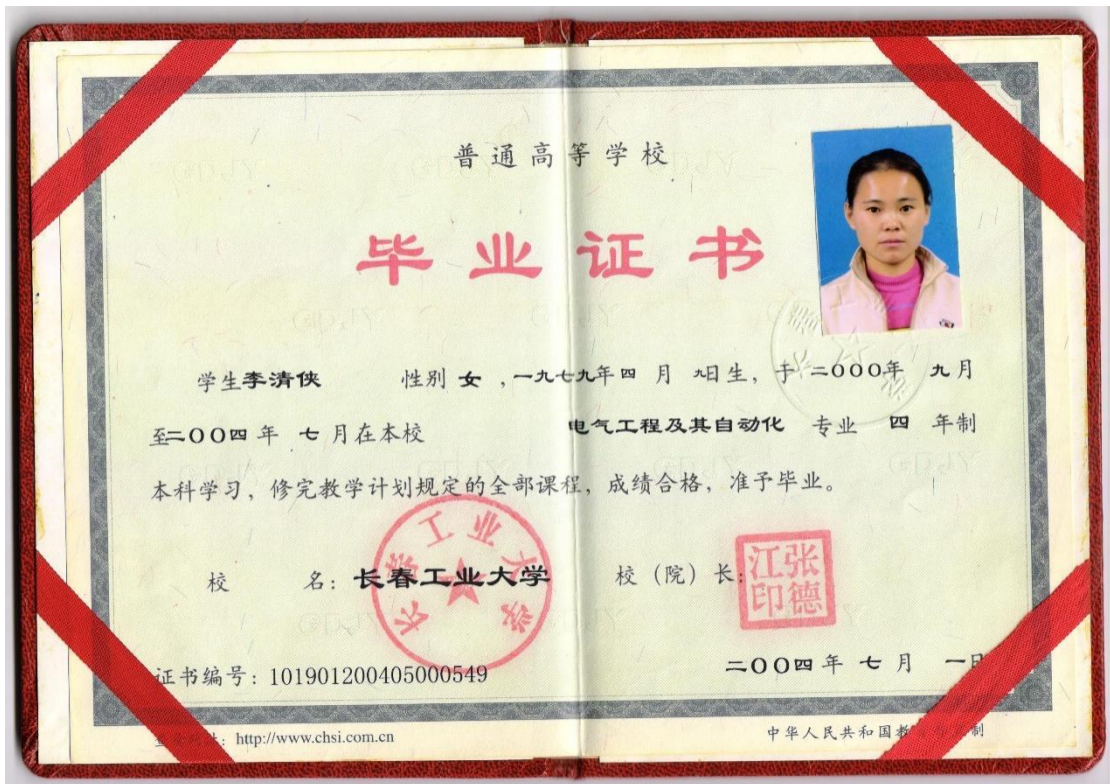 普通高等学校
毕业证书
学生李清侠 性别 女 ，一九七九年四 月 九日生，于 二000年 九月
至二00四 年 七 月在本校 电气工程及其自动化 专业 四 年制
本科学习，修完教学计划规定的全部课程，成绩合格，准予毕业。
校 名：长春工业大学 校（院）长：
长春工业大学
张德江印
二00四 年 七 月 一日
证书编号：101901200405000549
http://www.chsi.com.cn
中华人民共和国教 制